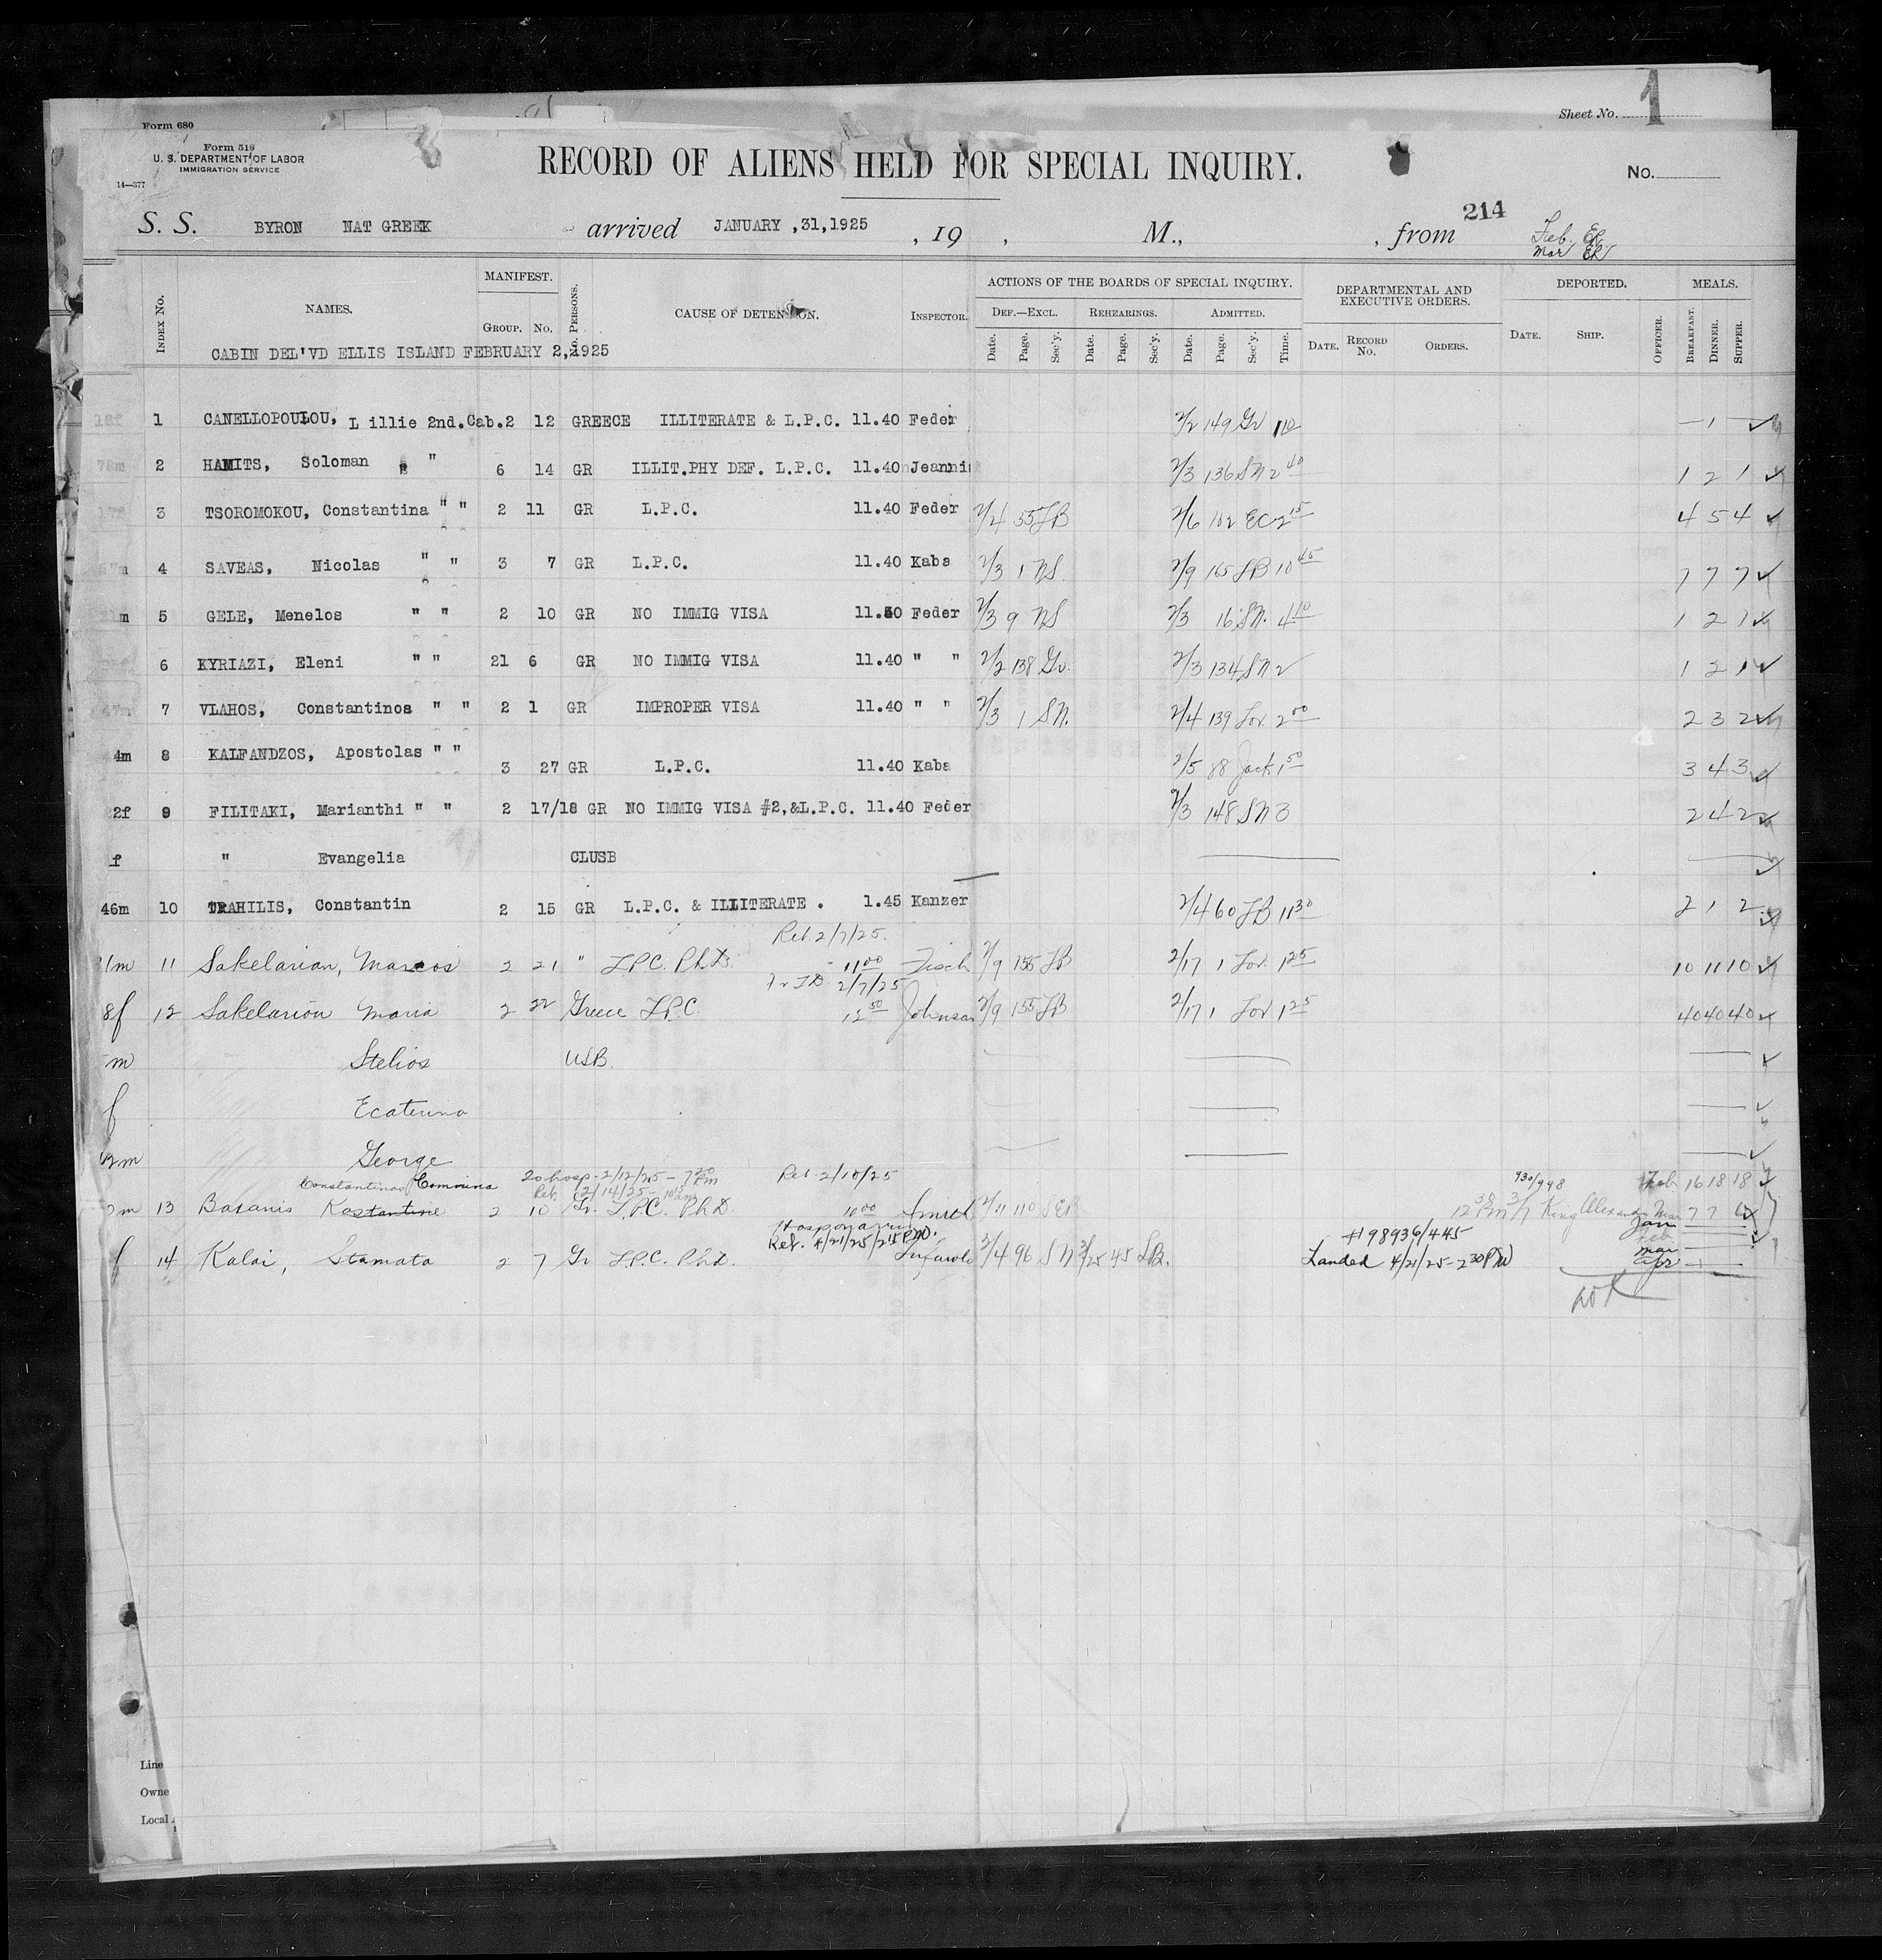 Sheet No. 1
Form 680
Form 518
U. S. DEPARTMENT OF LABOR
IMMIGRATION SERVICE
14—377
RECORD OF ALIENS HELD FOR SPECIAL INQUIRY.
No.
214
S. S. BYRON NAT GREEK arrived JANUARY ,31,1925 , 19 , M., , from
Feb. ER
Mar ER
Index No. NAMES. MANIFEST. GROUP. No. No. PERSONS. CAUSE OF DETENSION. INSPECTOR. ACTIONS OF THE BOARDS OF SPECIAL INQUIRY. DEPARTMENTAL AND EXECUTIVE ORDERS. DEPORTED. MEALS.
DEF.—EXCL. REHEARINGS. ADMITTED.
Date. Page. Sec'y. Date. Page. Sec'y. Date. Page. Sec'y. Time. DATE. RECORD No. ORDERS. DATE. SHIP. OFFICER. BREAKFAST. DINNER. SUPPER.
CABIN DEL'VD ELLIS ISLAND FEBRUARY 2,1925
18f 1 CANELLOPOULOU, L illie 2nd.Cab.2 12 GREECE ILLITERATE & L.P.C. 11.40 Feder 2/2 149 Gr 110 — 1 —
78m 2 HAMITS, Soloman " " 6 14 GR ILLIT.PHY DEF. L.P.C. 11.40 Jeannis 2/3 136 SN 2 40 1 2 1
17f 3 TSOROMOKOU, Constantina " " 2 11 GR L.P.C. 11.40 Feder 2/4 55 LB 2/6 102 EC 2 15 4 5 4
4 SAVEAS, Nicolas " " 3 7 GR L.P.C. 11.40 Kaba 2/3 1 NS. 2/9 165 LB 10 45 7 7 7
5 GELE, Menelos " " 2 10 GR NO IMMIG VISA 11.40 Feder 2/3 9 NS 2/3 16 SN. 4 40 1 2 1
6 KYRIAZI, Eleni " " 21 6 GR NO IMMIG VISA 11.40 " " 2/2 138 Gr. 2/3 134 SN 2 1 2 1
47m 7 VLAHOS, Constantinos " " 2 1 GR IMPROPER VISA 11.40 " " 2/3 1 SN. 2/4 139 Lor. 2 00 2 3 2
4m 8 KALFANDZOS, Apostolas " " 3 27 GR L.P.C. 11.40 Kaba 2/5 88 Jack 1 50 3 4 3
22f 9 FILITAKI, Marianthi " " 2 17/18 GR NO IMMIG VISA #2,&L.P.C. 11.40 Feder 2/3 148 SN 3 2 4 2
f " Evangelia CLUSB
46m 10 TRAHILIS, Constantin 2 15 GR L.P.C. & ILLITERATE . 1.45 Kanzer 2/4 60 LB 11 30 2 1 2
Rel 2/7/25.
1m 11 Sakelarian, Marcos 2 21 " L.P.C. Ph.D. 11 00 Fisch 2/9 155 LB 2/17 1 Lor. 1 25 10 11 10
2/7/25
8f 12 Sakelariou Maria 2 22 Greece L.P.C. 12 50 Johnson 2/9 155 LB 2/17 1 Lor 1 25 40 40 40
m Stelios USB.
f Ecaterina
m George
Constantinas Comnina To hosp. 2/12/25 — 7 20 PM Rel 2/10/25 930/998 Feb 16 18 18
Ret. 2/14/25 — 10 15 am
2m 13 Basanis Kostantine 2 10 Gr. L.P.C. Ph.D. 10 00 Smith 2/11 110 SER 12 38 PM 3/7 King Alexander Mar 7 7 6
Rel. 4/21/25/2 15 PM. #98936/445 Jan
Feb
Mar
f 14 Kalai, Stamata 2 7 Gr L.P.C. Ph.D. 2/4 96 SN 3/25 45 LB. Landed 4/21/25 - 2 30 PM Apr — 1 —
Line
Owne
Local